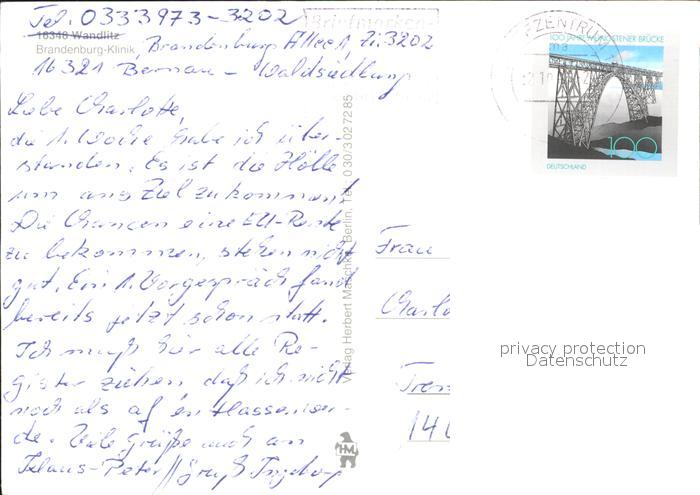 Tel. 0333973-3202
16348 Wandlitz
Brandenburg-Klinik, Brandenburg Allee 1, Zi. 3202
16321 Bernau - Waldsiedlung
Briefmarken
FZENTRUM
100 JAHRE MÜNGSTENER BRÜCKE
100
DEUTSCHLAND
Liebe Charlotte,
die 1. Woche habe ich über-
standen. Es ist die Hölle
um ans Ziel zu kommen.
Die Chancen eine EU-Rente
zu bekommen, stehen nicht
gut. Ein 1. Vorgespräch fand
bereits jetzt schon statt.
Ich muß hier alle Re-
gister ziehen daß ich nicht
noch als
de. Viele Grüße auch an
Klaus-Peter // Gruß Ingolf
Verlag Herbert Maschke, Berlin, Tel. 0 30/3 02 72 85
HM
Frau
Charlo
Tren
14
privacy protection
Datenschutz